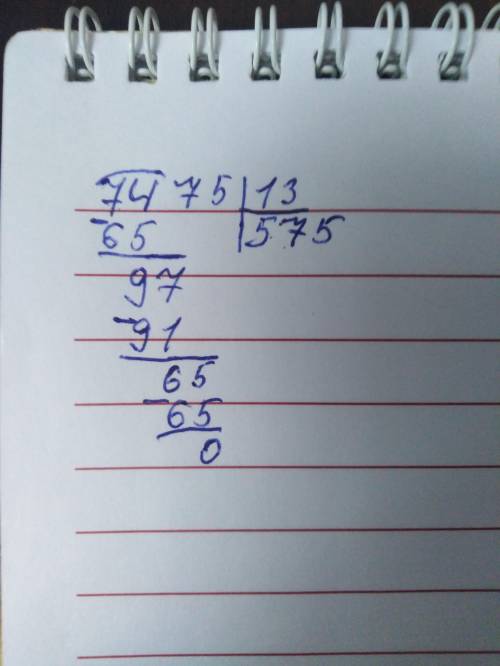 7475 13
65 575
97
91
65
65
0